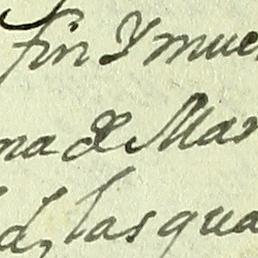 fin Y mue
na de Mar
d, las qua